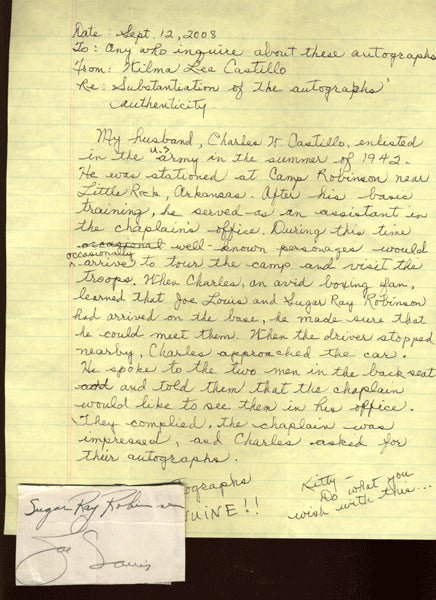 Date: Sept. 12, 2008
To: Any who inquire about these autographs
From: Wilma Lea Castillo
Re: Substantiation of the autographs'
authenticity.
My husband, Charles W. Castillo, enlisted
in the U.S. army in the summer of 1942.
He was stationed at Camp Robinson near
Little Rock, Arkansas. After his basic
training, he served as an assistant in
the chaplain's office. During this time
occasional well-known personages would
occasionally
arrive to tour the camp and visit the
troops. When Charles, an avid boxing fan,
learned that Joe Louis and Sugar Ray Robinson
had arrived on the base, he made sure that
he could meet them. When the driver stopped
nearby, Charles approached the car.
He spoke to the two men in the back seat
and and told them that the chaplain
would like to see them in his office.
They complied, the chaplain was
impressed, and Charles asked for
their autographs.
ographs
UINE!!
Kitty -
Do what you
wish with this...
Sugar Ray Robinson
Joe Louis